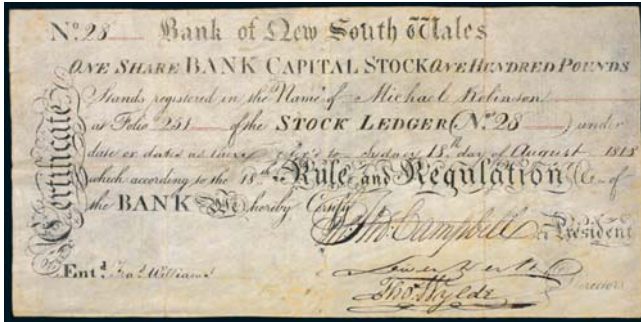 No. 28 Bank of New South Wales
ONE SHARE BANK CAPITAL STOCK ONE HUNDRED POUNDS
Stands registered in the Name of Michael Robinson
at Folio 251 of the STOCK LEDGER (No. 28) under
date or dates as there to Sydney 18th day of August 1818
which according to the 18th Rule and Regulation &c of
the BANK We hereby Certify
Certificate
Campbell President
Entd. Williams
Thos. Wylde